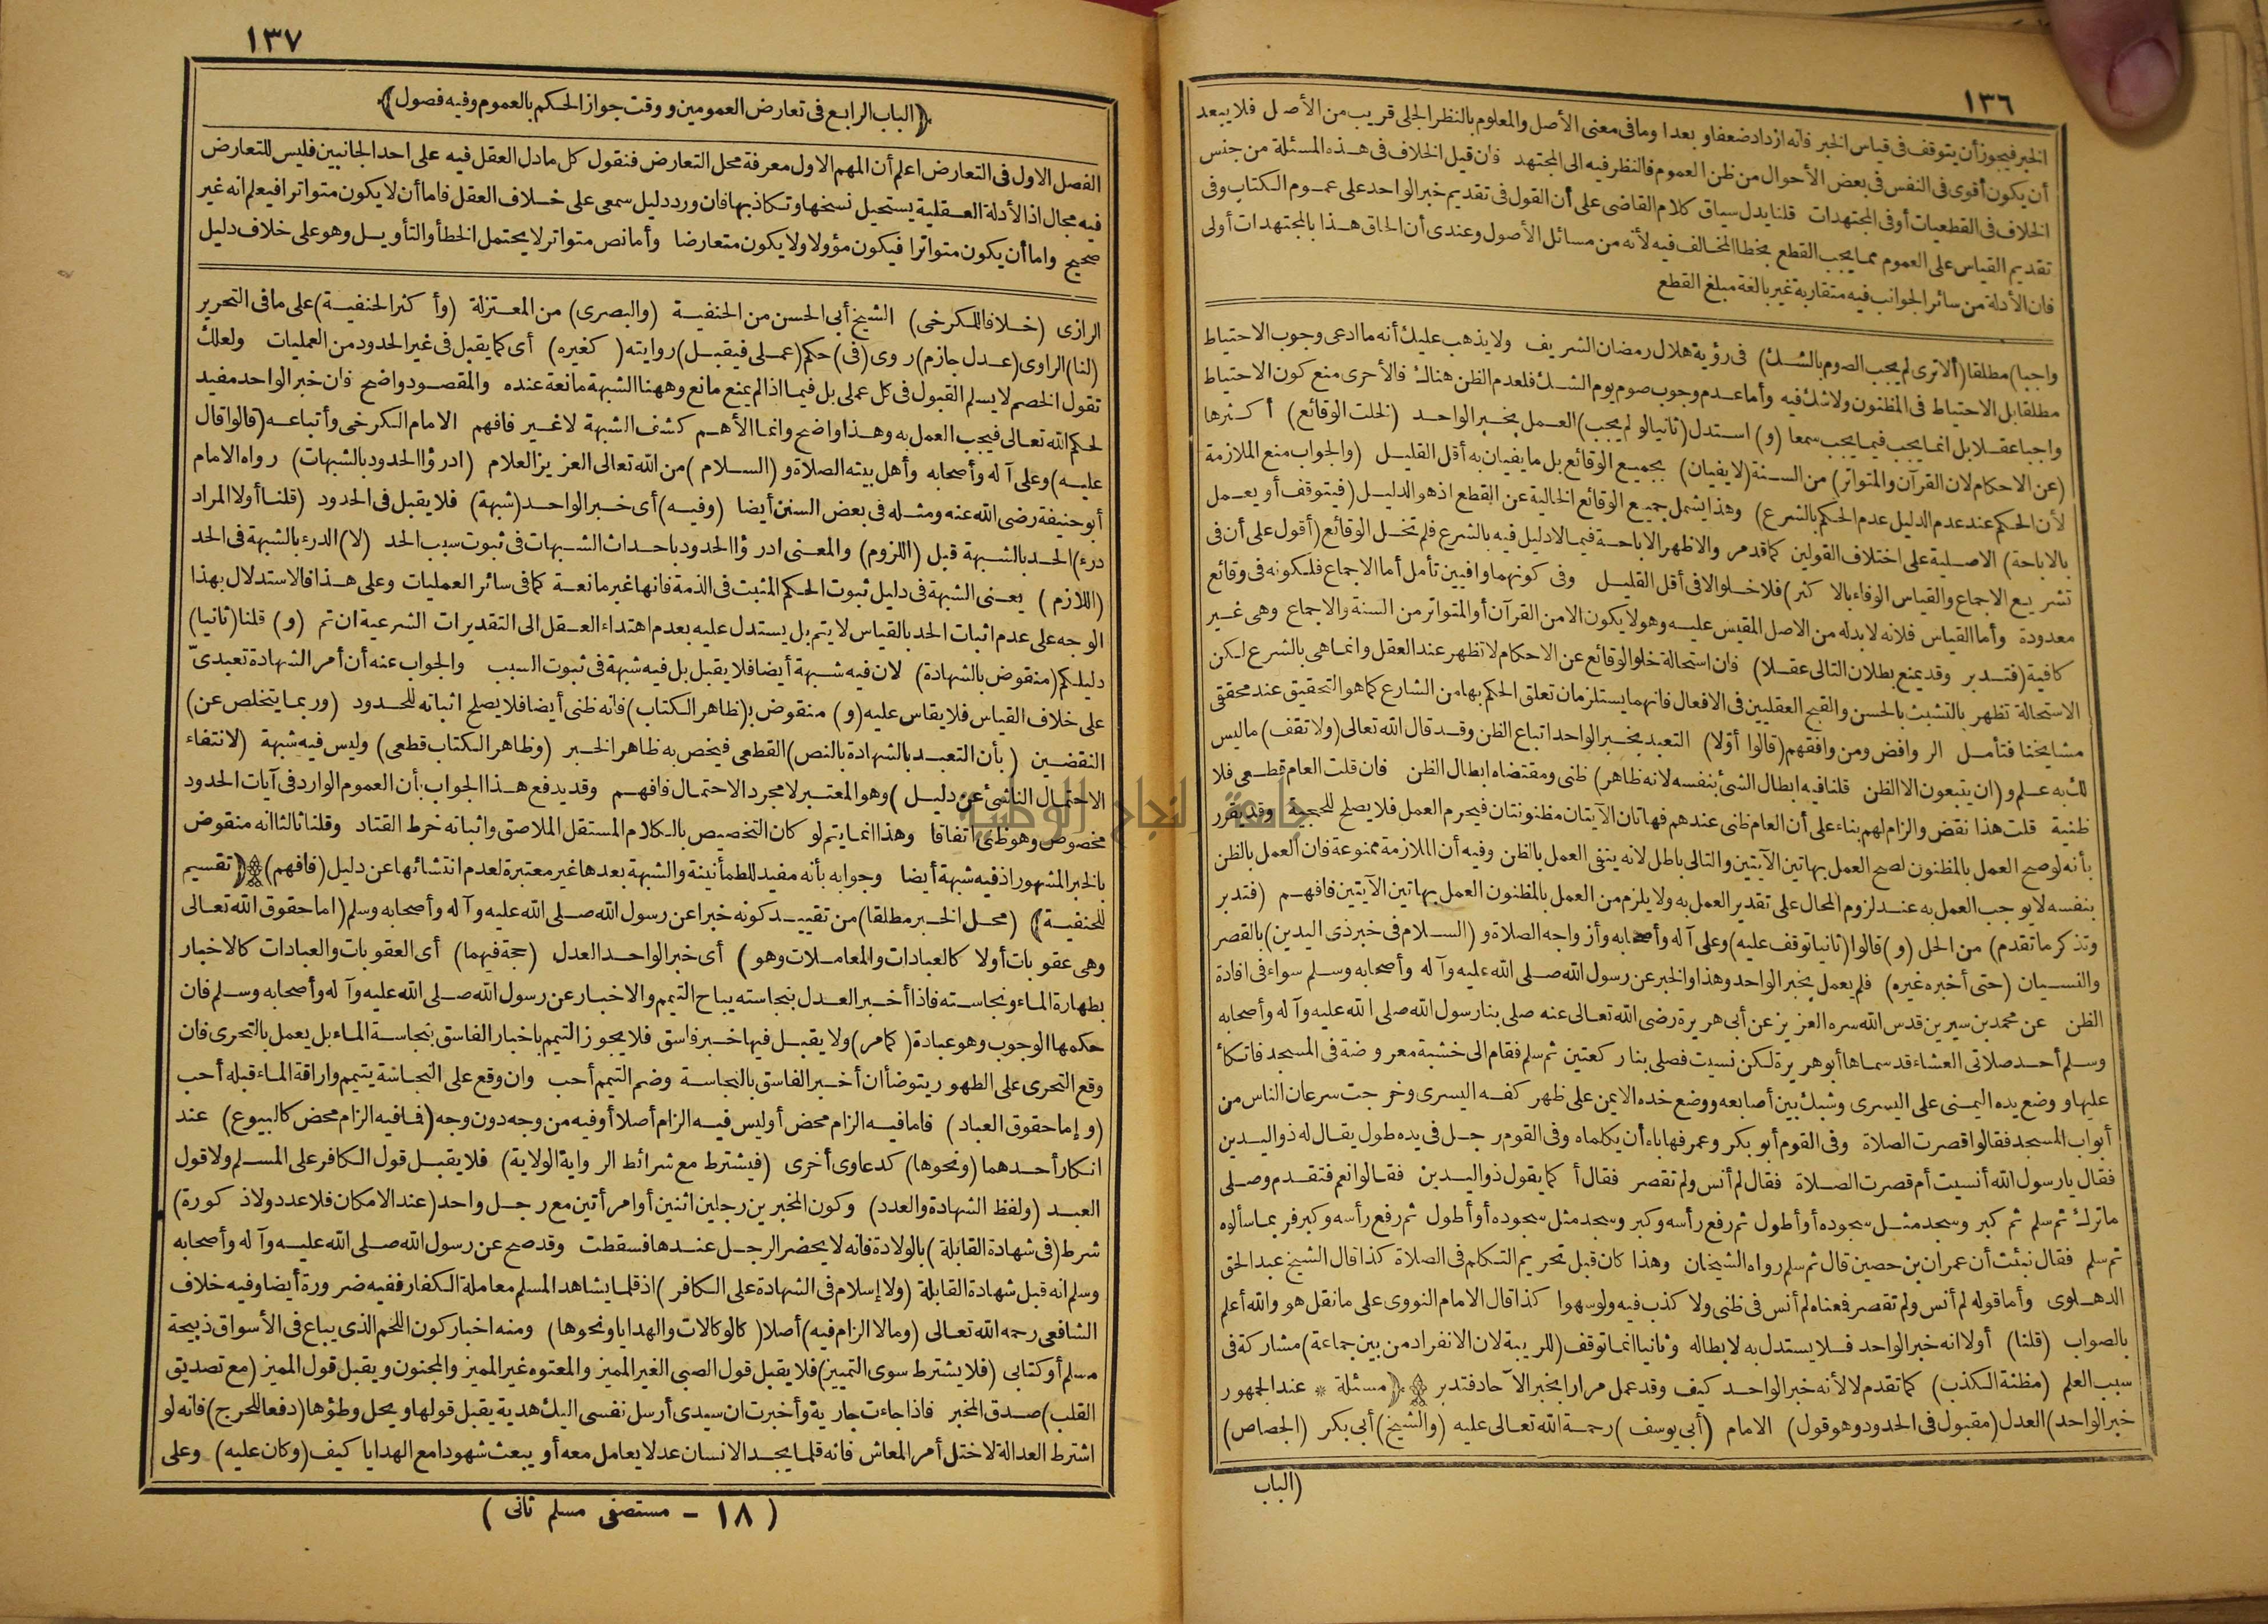 ١٣٦
الخبر فيجوز أن يتوقف فى قياس الخبر فانه ازداد ضعفا و بعدا وما فى معنى الأصل والمعلوم بالنظر الجلى قريب من الأصل فلا يبعد
أن يكون أقوى فى النفس فى بعض الأحوال من ظن العموم فالنظر فيه الى المجتهد فان قيل الخلاف فى هذه المسئلة من جنس
الخلاف فى القطعيات أو فى المجتهدات قلنا يدل سياق كلام القاضى على أن القول فى تقديم خبر الواحد على عموم الكتاب وفى
تقديم القياس على العموم مما يجب القطع بخطا المخالف فيه لأنه من مسائل الأصول وعندى أن الحاق هذا بالمجتهدات أولى
فان الأدلة من سائر الجوانب فيه متقاربة غير بالغة مبلغ القطع
واجبا) مطلقا (ألا ترى لم يجب الصوم بالشك) فى رؤية هلال رمضان الشريف ولا يذهب عليك أنه ما ادعى وجوب الاحتياط
مطلقا بل الاحتياط فى المظنون ولا شك فيه وأما عدم وجوب صوم يوم الشك فلعدم الظن هناك فالأحرى منع كون الاحتياط
واجبا عقلا بل انما يجب فيما يجب سمعا (و) استدل (ثانيا لو لم يجب) العمل بخبر الواحد (لخلت الوقائع) أكثرها
(عن الاحكام لان القرآن والمتواتر) من السنة (لا يفيان) بجميع الوقائع بل ما يفيان به أقل القليل (والجواب منع الملازمة
لأن الحكم عند عدم الدليل عدم الحكم بالشرع) وهذا يشمل جميع الوقائع الخالية عن القطع اذ هو الدليل (فيتوقف أو يعمل
بالاباحة) الاصلية على اختلاف القولين كما قد مر والاظهر الاباحة فيما لا دليل فيه بالشرع فلم تخل الوقائع (أقول على أن فى
تشريع الاجماع والقياس الوفاء بالاكثر) فلا خلو الا فى أقل القليل وفى كونهما وافيين تأمل أما الاجماع فلكونه فى وقائع
معدودة وأما القياس فلانه لا بد له من الاصل المقيس عليه وهو لا يكون الا من القرآن أو المتواتر من السنة والاجماع وهى غير
كافية (فتدبر وقد يمنع بطلان التالى عقلا) فان استحالة خلو الوقائع عن الاحكام لا تظهر عند العقل وانما هى بالشرع لكن
الاستحالة تظهر بالتشبث بالحسن والقبح العقليين فى الافعال فانهما يستلزمان تعلق الحكم بها من الشارع كما هو التحقيق عند محققى
مشايخنا فتأمل الروافض ومن وافقهم (قالوا أوّلا) التعبد بخبر الواحد اتباع الظن وقد قال الله تعالى (ولا تقف) ما ليس
لك به علم و (ان يتبعون الا الظن قلنا فيه ابطال الشئ بنفسه لانه ظاهر) ظنى ومقتضاه ابطال الظن فان قلت العام قطعى فلا
ظنية قلت هذا نقض والزام لهم بناء على أن العام ظنى عندهم فهاتان الآيتان مظنونتان فيحرم العمل فلا يصلح للحجية وقد يقرر
بأنه لو صح العمل بالمظنون لصح العمل بهاتين الآيتين والتالى باطل لانه ينفى العمل بالظن وفيه أن الملازمة ممنوعة فان العمل بالظن
بنفسه لا يوجب العمل به عند لزوم المحال على تقدير العمل به ولا يلزم من العمل بالمظنون العمل بهاتين الآيتين فافهم (فتدبر
وتذكر ما تقدم) من الحل (و) قالوا (ثانيا توقف عليه) وعلى آله وأصحابه وأزواجه الصلاة و (السلام فى خبر ذى اليدين) بالقصر
والنسيان (حتى أخبره غيره) فلم يعمل بخبر الواحد وهذا والخبر عن رسول الله صلى الله عليه وآله وأصحابه وسلم سواء فى افادة
الظن عن محمد بن سيرين قدس الله سره العزيز عن أبى هريرة رضى الله تعالى عنه صلى بنا رسول الله صلى الله عليه وآله وأصحابه
وسلم أحد صلاتى العشاء قد سماها أبو هريرة لكن نسيت فصلى بنا ركعتين ثم سلم فقام الى خشبة معروضة فى المسجد فاتكأ
عليها ووضع يده اليمنى على اليسرى وشبك بين أصابعه ووضع خده الايمن على ظهر كفه اليسرى وخرجت سرعان الناس من
أبواب المسجد فقالوا قصرت الصلاة وفى القوم أبو بكر وعمر فهاباه أن يكلماه وفى القوم رجل فى يده طول يقال له ذو اليدين
فقال يا رسول الله أنسيت أم قصرت الصلاة فقال لم أنس ولم تقصر فقال أكما يقول ذو اليدين فقالوا نعم فتقدم وصلى
ما ترك ثم سلم ثم كبر وسجد مثل سجوده أو أطول ثم رفع رأسه وكبر وسجد مثل سجوده أو أطول ثم رفع رأسه وكبر فربما سألوه
ثم سلم فقال نبئت أن عمران بن حصين قال ثم سلم رواه الشيخان وهذا كان قبل تحريم التكلم فى الصلاة كذا قال الشيخ عبد الحق
الدهلوى وأما قوله لم أنس ولم تقصر فعناه لم أنس فى ظنى ولا كذب فيه ولو سهوا كذا قال الامام النووى على ما نقل هو والله أعلم
بالصواب (قلنا) أولا انه خبر الواحد فلا يستدل به لابطاله وثانيا انما توقف (للريبة لان الانفراد من بين جماعة) مشاركة فى
سبب العلم (مظنة الكذب) كما تقدم لا لأنه خبر الواحد كيف وقد عمل مرارا بخبر الآحاد فتدبر ﴿مسئلة * عند الجمهور
خبر الواحد) العدل (مقبول فى الحدود وهو قول) الامام (أبى يوسف) رحمة الله تعالى عليه (والشيخ) أبى بكر (الجصاص)
(الباب
١٣٧
﴿الباب الرابع فى تعارض العمومين ووقت جواز الحكم بالعموم وفيه فصول﴾
الفصل الاول فى التعارض اعلم أن المهم الاول معرفة محل التعارض فنقول كل ما دل العقل فيه على احد الجانبين فليس للتعارض
فيه مجال اذ الأدلة العقلية يستحيل نسخها وتكاذبها فان ورد دليل سمعى على خلاف العقل فاما أن لا يكون متواترا فيعلم انه غير
صحيح واما أن يكون متواترا فيكون مؤولا ولا يكون متعارضا وأما نص متواتر لا يحتمل الخطأ والتأويل وهو على خلاف دليل
الرازى (خلافا للكرخى) الشيخ أبى الحسن من الحنفية (والبصرى) من المعتزلة (وأكثر الحنفية) على ما فى التحرير
(لنا) الراوى (عدل جازم) روى (فى) حكم (عملى فيقبل) روايته (كغيره) أى كما يقبل فى غير الحدود من العمليات ولعلك
تقول الخصم لا يسلم القبول فى كل عملى بل فيما اذا لم يمنع مانع وههنا الشبهة مانعة عنده والمقصود واضح فان خبر الواحد مفيد
لحكم الله تعالى فيجب العمل به وهذا واضح وانما الأهم كشف الشبهة لا غير فافهم الامام الكرخى وأتباعه (قالوا قال
عليه) وعلى آله وأصحابه وأهل بيته الصلاة و (السلام) من الله تعالى العزيز العلام (ادرؤا الحدود بالشبهات) رواه الامام
أبو حنيفة رضى الله عنه ومثله فى بعض السنن أيضا (وفيه) أى خبر الواحد (شبهة) فلا يقبل فى الحدود (قلنا أولا المراد
درء) الحد بالشبهة قبل (اللزوم) والمعنى ادرؤا الحدود باحداث الشبهات فى ثبوت سبب الحد (لا) الدرء بالشبهة فى الحد
(اللازم) يعنى الشبهة فى دليل ثبوت الحكم المثبت فى الذمة فانها غير مانعة كما فى سائر العمليات وعلى هذا فالاستدلال بهذا
الوجه على عدم اثبات الحد بالقياس لا يتم بل يستدل عليه بعدم اهتداء العقل الى التقديرات الشرعية ان تم (و) قلنا (ثانيا)
دليلكم (منقوض بالشهادة) لان فيه شبهة أيضا فلا يقبل بل فيه شبهة فى ثبوت السبب والجواب عنه أن أمر الشهادة تعبدىّ
على خلاف القياس فلا يقاس عليه (و) منقوض بـ (ظاهر الكتاب) فانه ظنى أيضا فلا يصلح اثباته للحدود (وربما يتخلص عن)
النقضين (بأن التعبد بالشهادة بالنص) القطعى فيخص به ظاهر الخبر (وظاهر الكتاب قطعى) وليس فيه شبهة (لانتفاء
الاحتمال الناشئ عن دليل) وهو المعتبر لا مجرد الاحتمال فافهم وقد يدفع هذا الجواب بأن العموم الوارد فى آيات الحدود
مخصوص وهو ظنى اتفاقا وهذا انما يتم لو كان التخصيص بالكلام المستقل الملاصق واثباته خرط القتاد وقلنا ثالثا انه منقوض
بالخبر المشهور اذ فيه شبهة أيضا وجوابه بأنه مفيد للطمأنينة والشبهة بعدها غير معتبرة لعدم انتشائها عن دليل (فافهم) ﴿تقسيم
للحنفية﴾ (محل الخبر مطلقا) من تقييد كونه خبرا عن رسول الله صلى الله عليه وآله وأصحابه وسلم (اما حقوق الله تعالى
وهى عقوبات أولا كالعبادات والمعاملات وهو) أى خبر الواحد العدل (حجة فيهما) أى العقوبات والعبادات كالاخبار
بطهارة الماء ونجاسته فاذا أخبر العدل بنجاسته يباح التيمم والاخبار عن رسول الله صلى الله عليه وآله وأصحابه وسلم فان
حكمها الوجوب وهو عبادة (كما مر) ولا يقبل فيها خبر فاسق فلا يجوز التيمم باخبار الفاسق بنجاسة الماء بل يعمل بالتحرى فان
وقع التحرى على الطهور يتوضأ ان أخبر الفاسق بالنجاسة وضم التيمم أحب وان وقع على النجاسة يتيمم واراقة الماء قبله أحب
(وإما حقوق العباد) فاما فيه الزام محض أو ليس فيه الزام أصلا أو فيه من وجه دون وجه (فما فيه الزام محض كالبيوع) عند
انكار أحدهما (ونحوها) كدعاوى أخرى (فيشترط مع شرائط الرواية الولاية) فلا يقبل قول الكافر على المسلم ولا قول
العبد (ولفظ الشهادة والعدد) وكون المخبرين رجلين اثنين أو امرأتين مع رجل واحد (عند الامكان فلا عدد ولا ذكورة)
شرط (فى شهادة القابلة) بالولادة فانه لا يحضر الرجل عندها فسقطت وقد صح عن رسول الله صلى الله عليه وآله وأصحابه
وسلم أنه قبل شهادة القابلة (ولا إسلام فى الشهادة على الكافر) اذ قلما يشاهد المسلم معاملة الكفار ففيه ضرورة أيضا وفيه خلاف
الشافعى رحمه الله تعالى (وما لا الزام فيه) أصلا (كالوكالات والهدايا ونحوها) ومنه اخبار كون اللحم الذى يباع فى الأسواق ذبيحة
مسلم أو كتابى (فلا يشترط سوى التمييز) فلا يقبل قول الصبى الغير المميز والمعتوه غير المميز والمجنون ويقبل قول المميز (مع تصديق
القلب) صدق المخبر فاذا جاءت جارية وأخبرت ان سيدى أرسل نفسى اليك هدية يقبل قولها ويحل وطؤها (دفعا للحرج) فانه لو
اشترط العدالة لاختل أمر المعاش فانه قلما يجد الانسان عدلا يعامل معه أو يبعث شهودا مع الهدايا كيف (وكان عليه) وعلى
(١٨ - مستصفى مسلم ثانى)
جامعة النجاح الوطنية